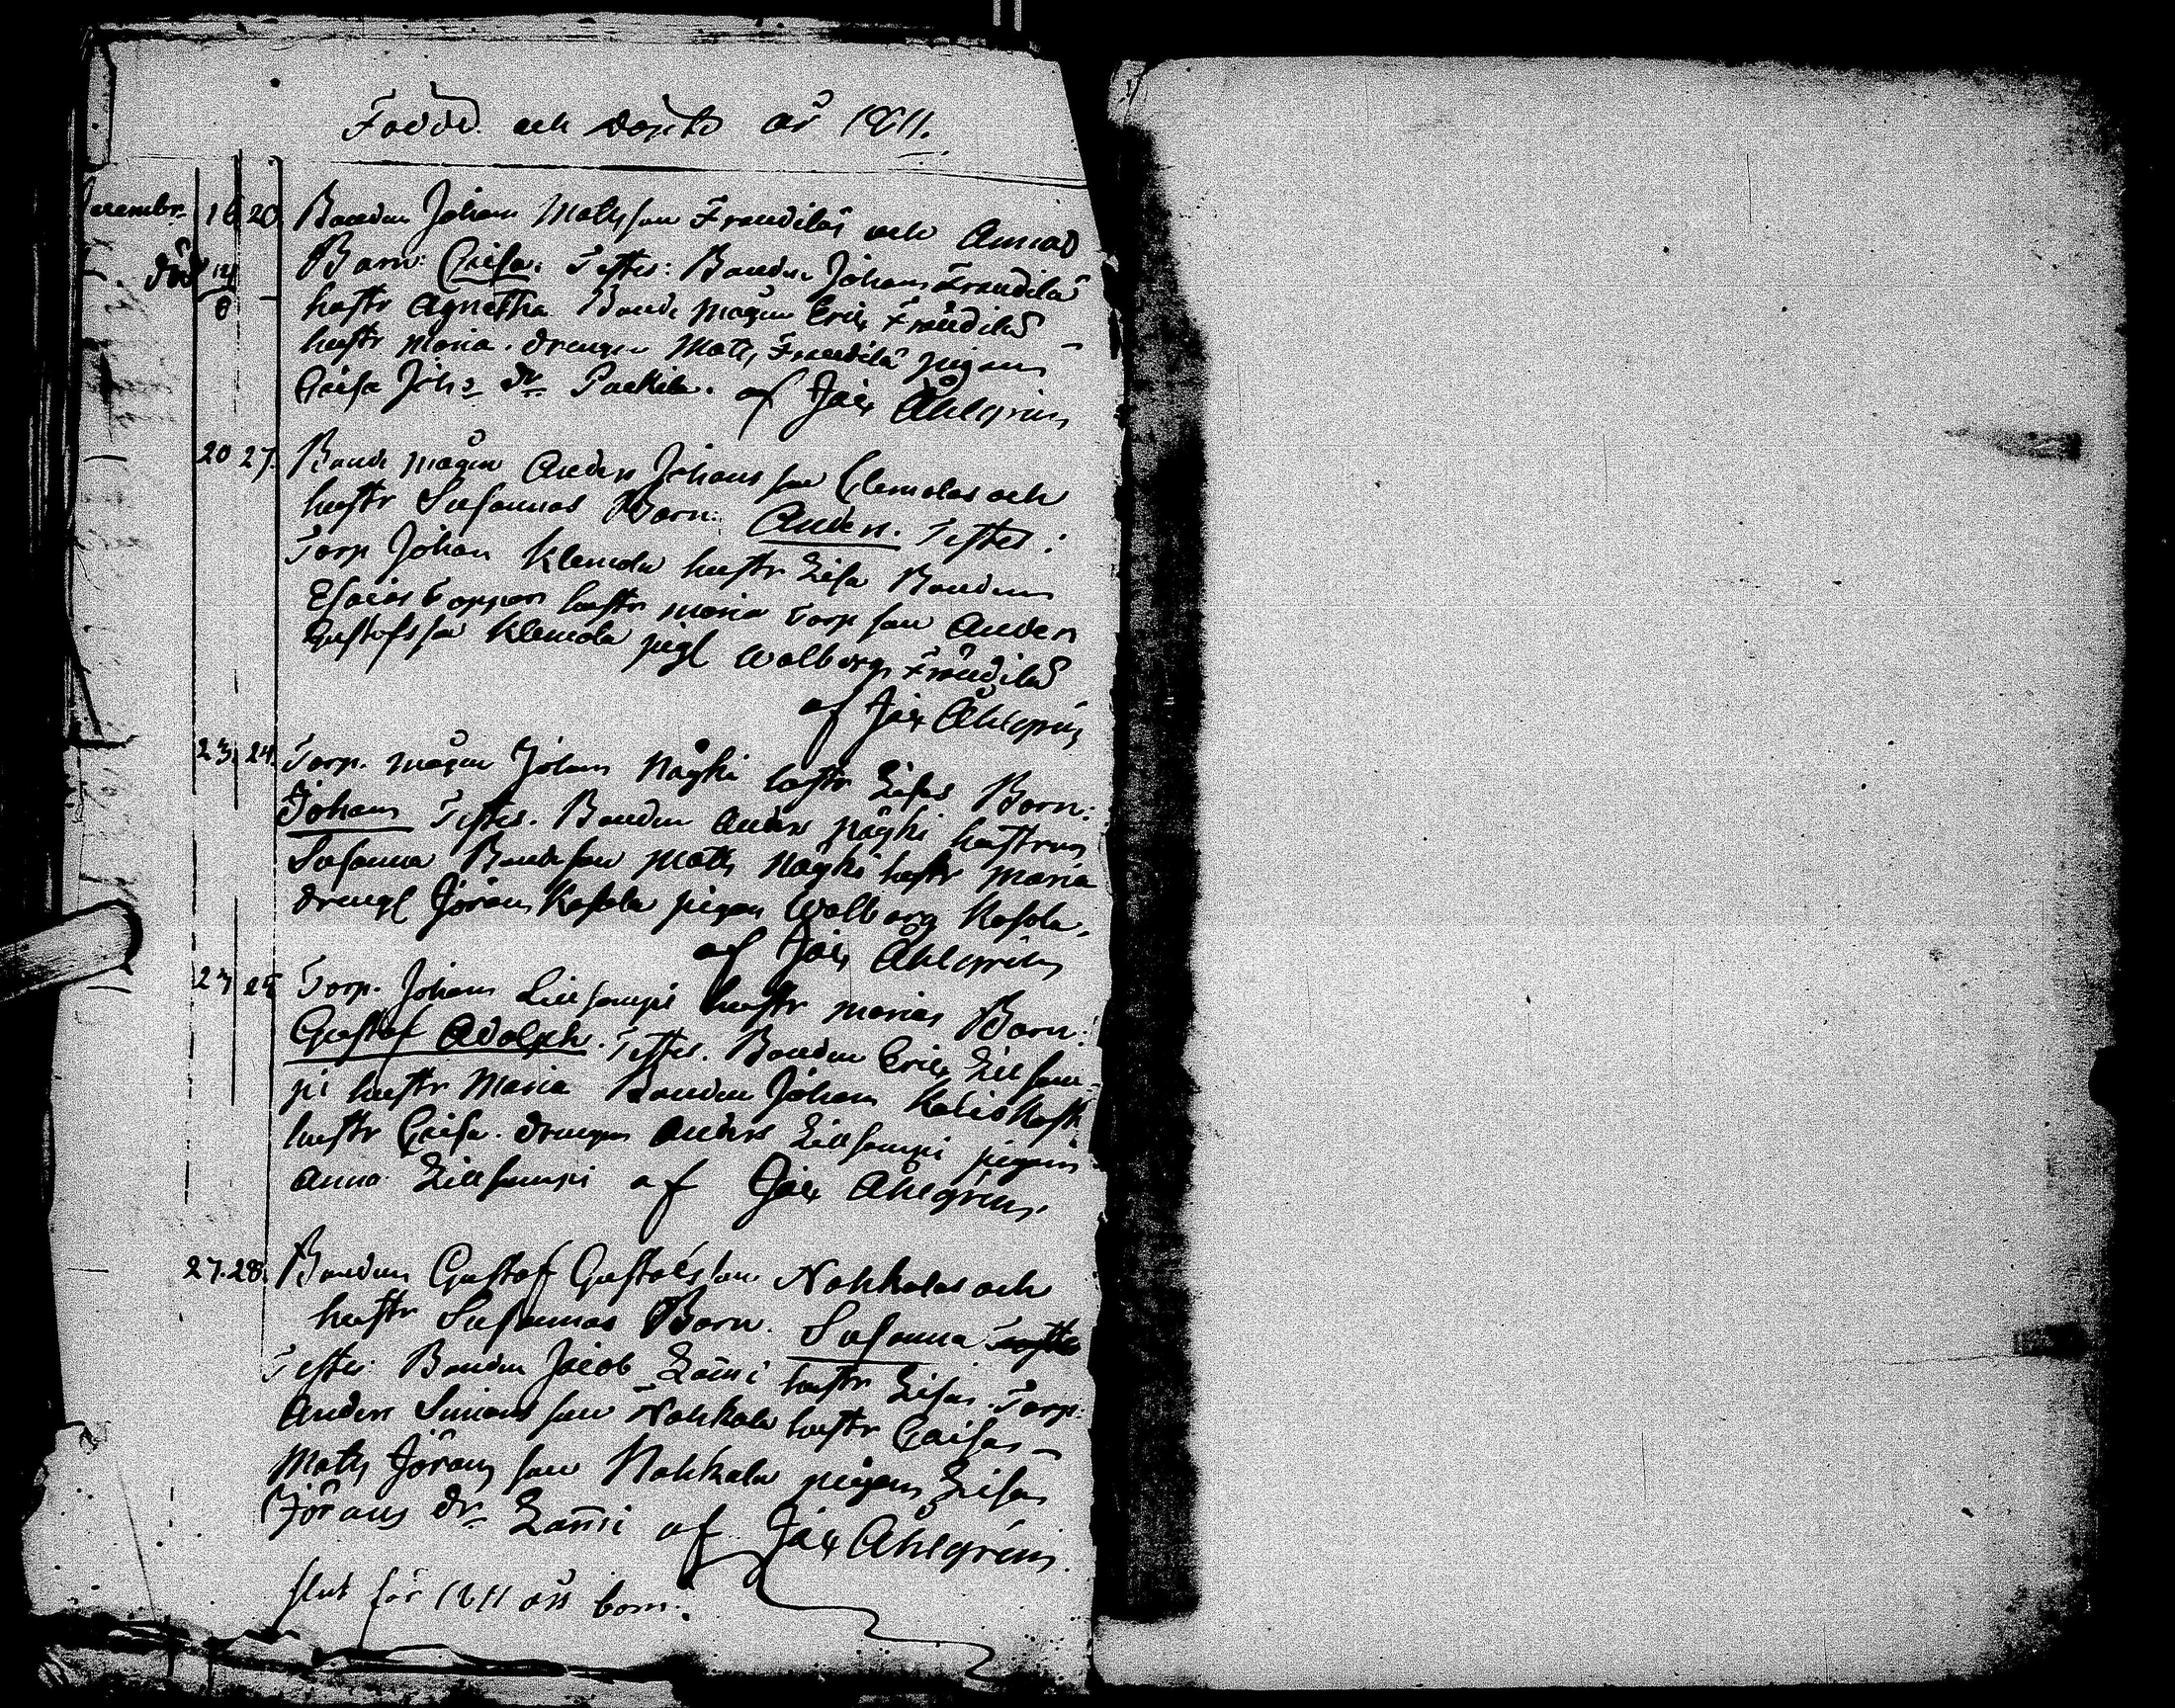 Födde och döpte år 1811.
Decembr. 16 20 Bonden Johan Mats son Frändiläs och Annas
död 14/8 Barn: Caisa. Testes: Bonden Johan Frändilä
hustr Agnetha Bonde mågen Eric Frändilä
hustr Maria. drengen Matts Frändilä pigan
Caisa Joh: dr Packila. af Jac Åhlgrén
20 27. Bonde mågen Anders Johans son Clemolas och
hustr Susannas Barn: Anders. Testes:
Torp Johan Klemola hustr Lisa Bonden
Esaias Toppar hustr Maria Torp son Anders
Gustafs son Klemola pig Walborg Frändilä
af Jac Åhlgrén
23. 24. Torp. mågen Johan Näyki hustr Lisas Barn:
Johan Testes. Bonden Anders Näyki hustrun
Susanna Bonde son Matts Näyki hustr Maria
dreng Jöran Kasola pigan Walborg Kasola.
af Jac Åhlgrén
23 25 Torp. Johan Lillsampi hustr Marias Barn:
Gustaf Adolph. Testes. Bonden Eric Lillsam-
pi hustr Maria Bonden Johan
hustr Caisa. drengen Anders Lillsampi pigan
Anna Lillsampi af Jac Åhlgrén.
27. 28. Bonden Gustaf Gustafs son Nokkalas och
hustr Susannas Barn. Susanna
Testes: Bonden Jacob Länsi hustr Lisa. Torp:
Anders Simons son Nokkala hustr Caisa
Matts Jörans son Nokkala pigan Lisa
Jörans dr Länsi af Jac Åhlgrén.
slut för 1811 års barn.